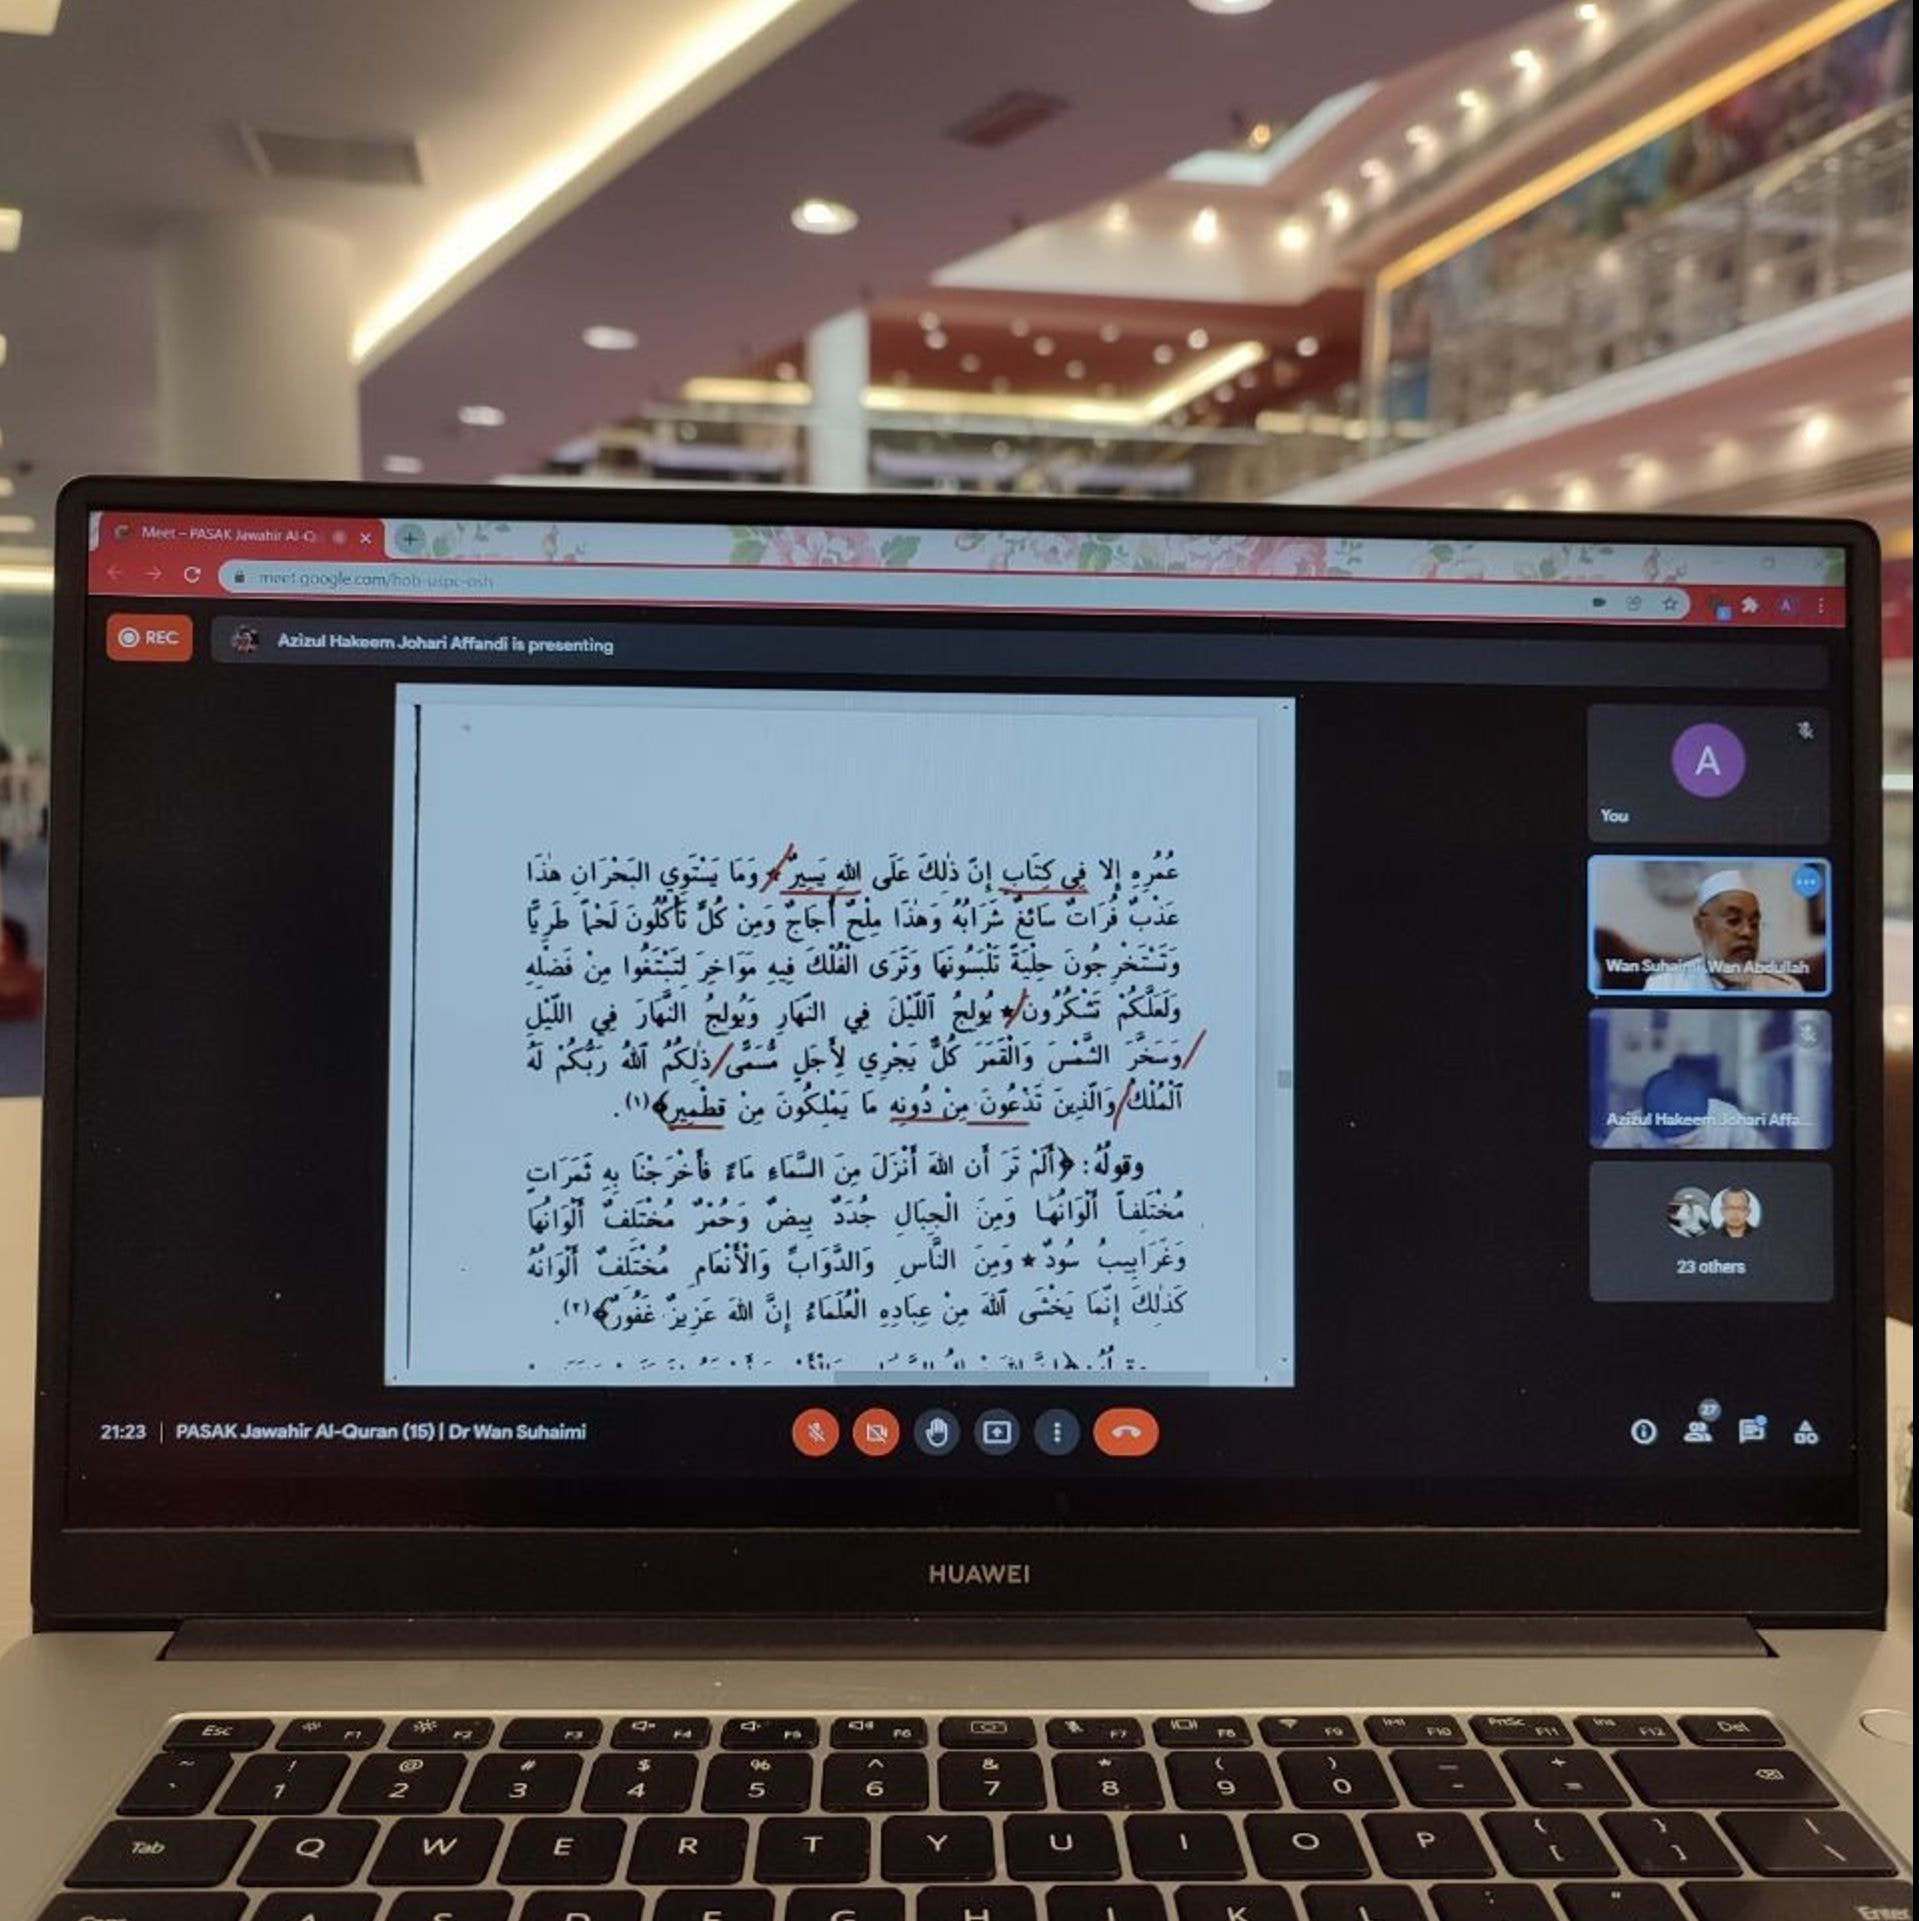 Meet – PASAK Jawahir Al-Q
meet.google.com/hob-uspc-osh
REC
Azizul Hakeem Johari Affandi is presenting
عُمُرِهِ إلا فِي كِتَابٍ إِنَّ ذٰلِكَ عَلَى اللهِ يَسِيرٌ * وَمَا يَسْتَوِي البَحْرَانِ هذَا
عَذْبٌ فُرَاتٌ سَائغٌ شَرَابُهُ وَهٰذَا مِلْحٌ أُجَاجٌ وَمِنْ كُلٍّ تَأْكُلُونَ لَحْماً طَرِيًّا
وَتَسْتَخْرِجُونَ حِلْيَةً تَلْبَسُونَهَا وَتَرَى الْفُلْكَ فِيهِ مَوَاخِرَ لِتَبْتَغُوا مِنْ فَضْلِهِ
وَلَعَلَّكُمْ تَشْكُرُونَ * يُولِجُ اللَّيْلَ فِي النَّهَارِ وَيُولِجُ النَّهَارَ فِي اللَّيْلِ
وَسَخَّرَ الشَّمْسَ وَالْقَمَرَ كُلٌّ يَجْرِي لِأَجَلٍ مُسَمًّى ذٰلِكُمُ اللهُ رَبُّكُمْ لَهُ
الْمُلْكُ وَالَّذِينَ تَدْعُونَ مِنْ دُونِهِ مَا يَمْلِكُونَ مِنْ قِطْمِيرٍ﴾(١).
وقولُهُ: ﴿أَلَمْ تَرَ أن اللهَ أَنْزَلَ مِنَ السَّمَاءِ مَاءً فَأَخْرَجْنَا بِهِ ثَمَرَاتٍ
مُخْتَلِفاً أَلْوَانُهَا وَمِنَ الْجِبَالِ جُدَدٌ بِيضٌ وَحُمْرٌ مُخْتَلِفٌ أَلْوَانُهَا
وَغَرَابِيبُ سُودٌ * وَمِنَ النَّاسِ وَالدَّوَابِّ وَالْأَنْعَامِ مُخْتَلِفٌ أَلْوَانُهُ
كَذٰلِكَ إِنَّمَا يَخْشَى اللهَ مِنْ عِبَادِهِ الْعُلَمَاءُ إِنَّ اللهَ عَزِيزٌ غَفُورٌ﴾(٢).
A
You
Wan Suhaimi Wan Abdullah
Azizul Hakeem Johari Affa...
23 others
21:23 | PASAK Jawahir Al-Quran (15) | Dr Wan Suhaimi
27
HUAWEI
Esc F1 F2 F3 F4 F5 F6 F7 F8 F9 F10 PrtSc F11 Ins F12 Del
~ ! @ # $ % ^ & * ( ) — +
` 1 2 3 4 5 6 7 8 9 0 - =
Tab Q W E R T Y U I O P { [ } ] | \
A S D F G H J K L : " Enter